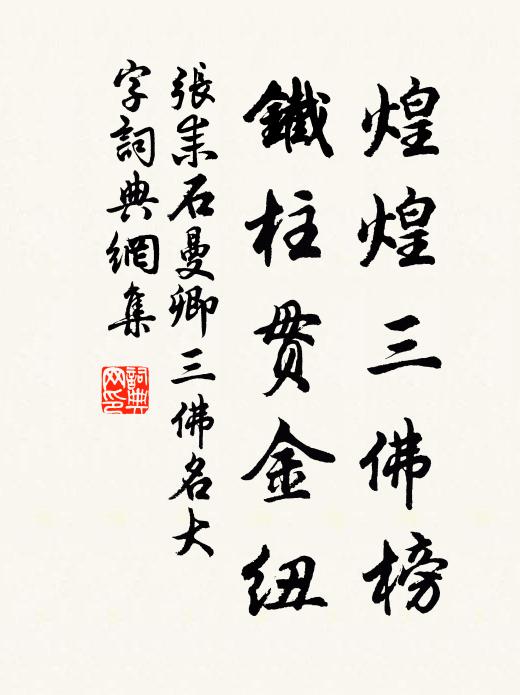 煌煌三佛榜
鐵柱貫金紐
張耒石曼卿三佛名大
字詞典網集
詞典網印